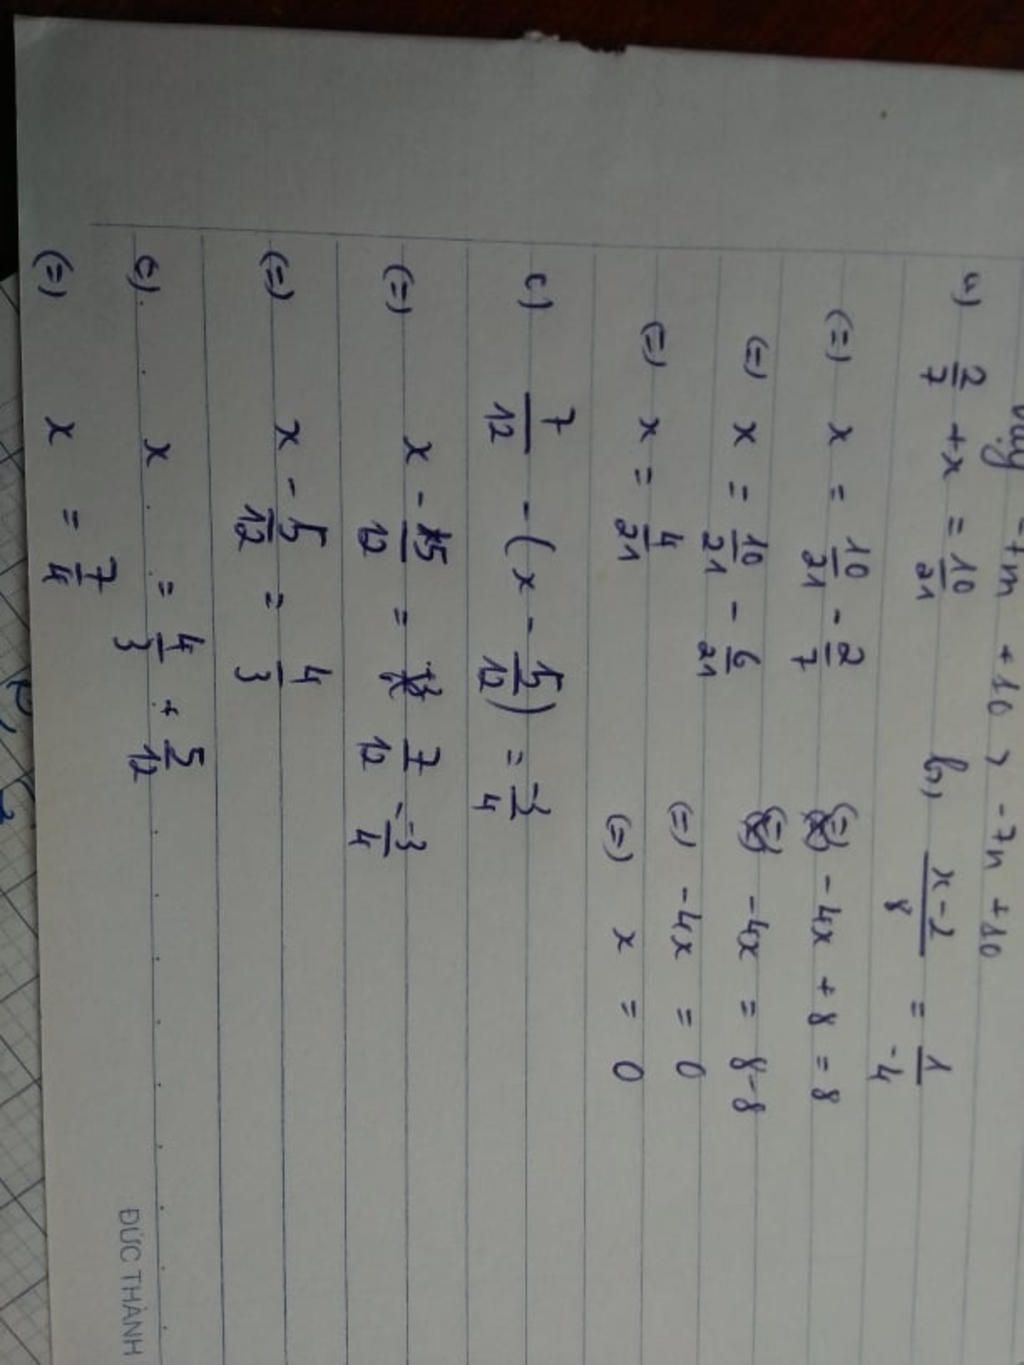 -7m + 10 > -7n + 10
a) 2/7 + x = 10/21
(=) x = 10/21 - 2/7
(=) x = 10/21 - 6/21
(=) x = 4/21
b, x-2/8 = 1/-4
(=) -4x + 8 = 8
(=) -4x = 8-8
(=) -4x = 0
(=) x = 0
c) 7/12 - (x - 5/12) = -3/4
(=) x - 5/12 = 7/12 - -3/4
(=) x - 5/12 = 4/3
c) x = 4/3 + 5/12
(=) x = 7/4
ĐỨC THÀNH